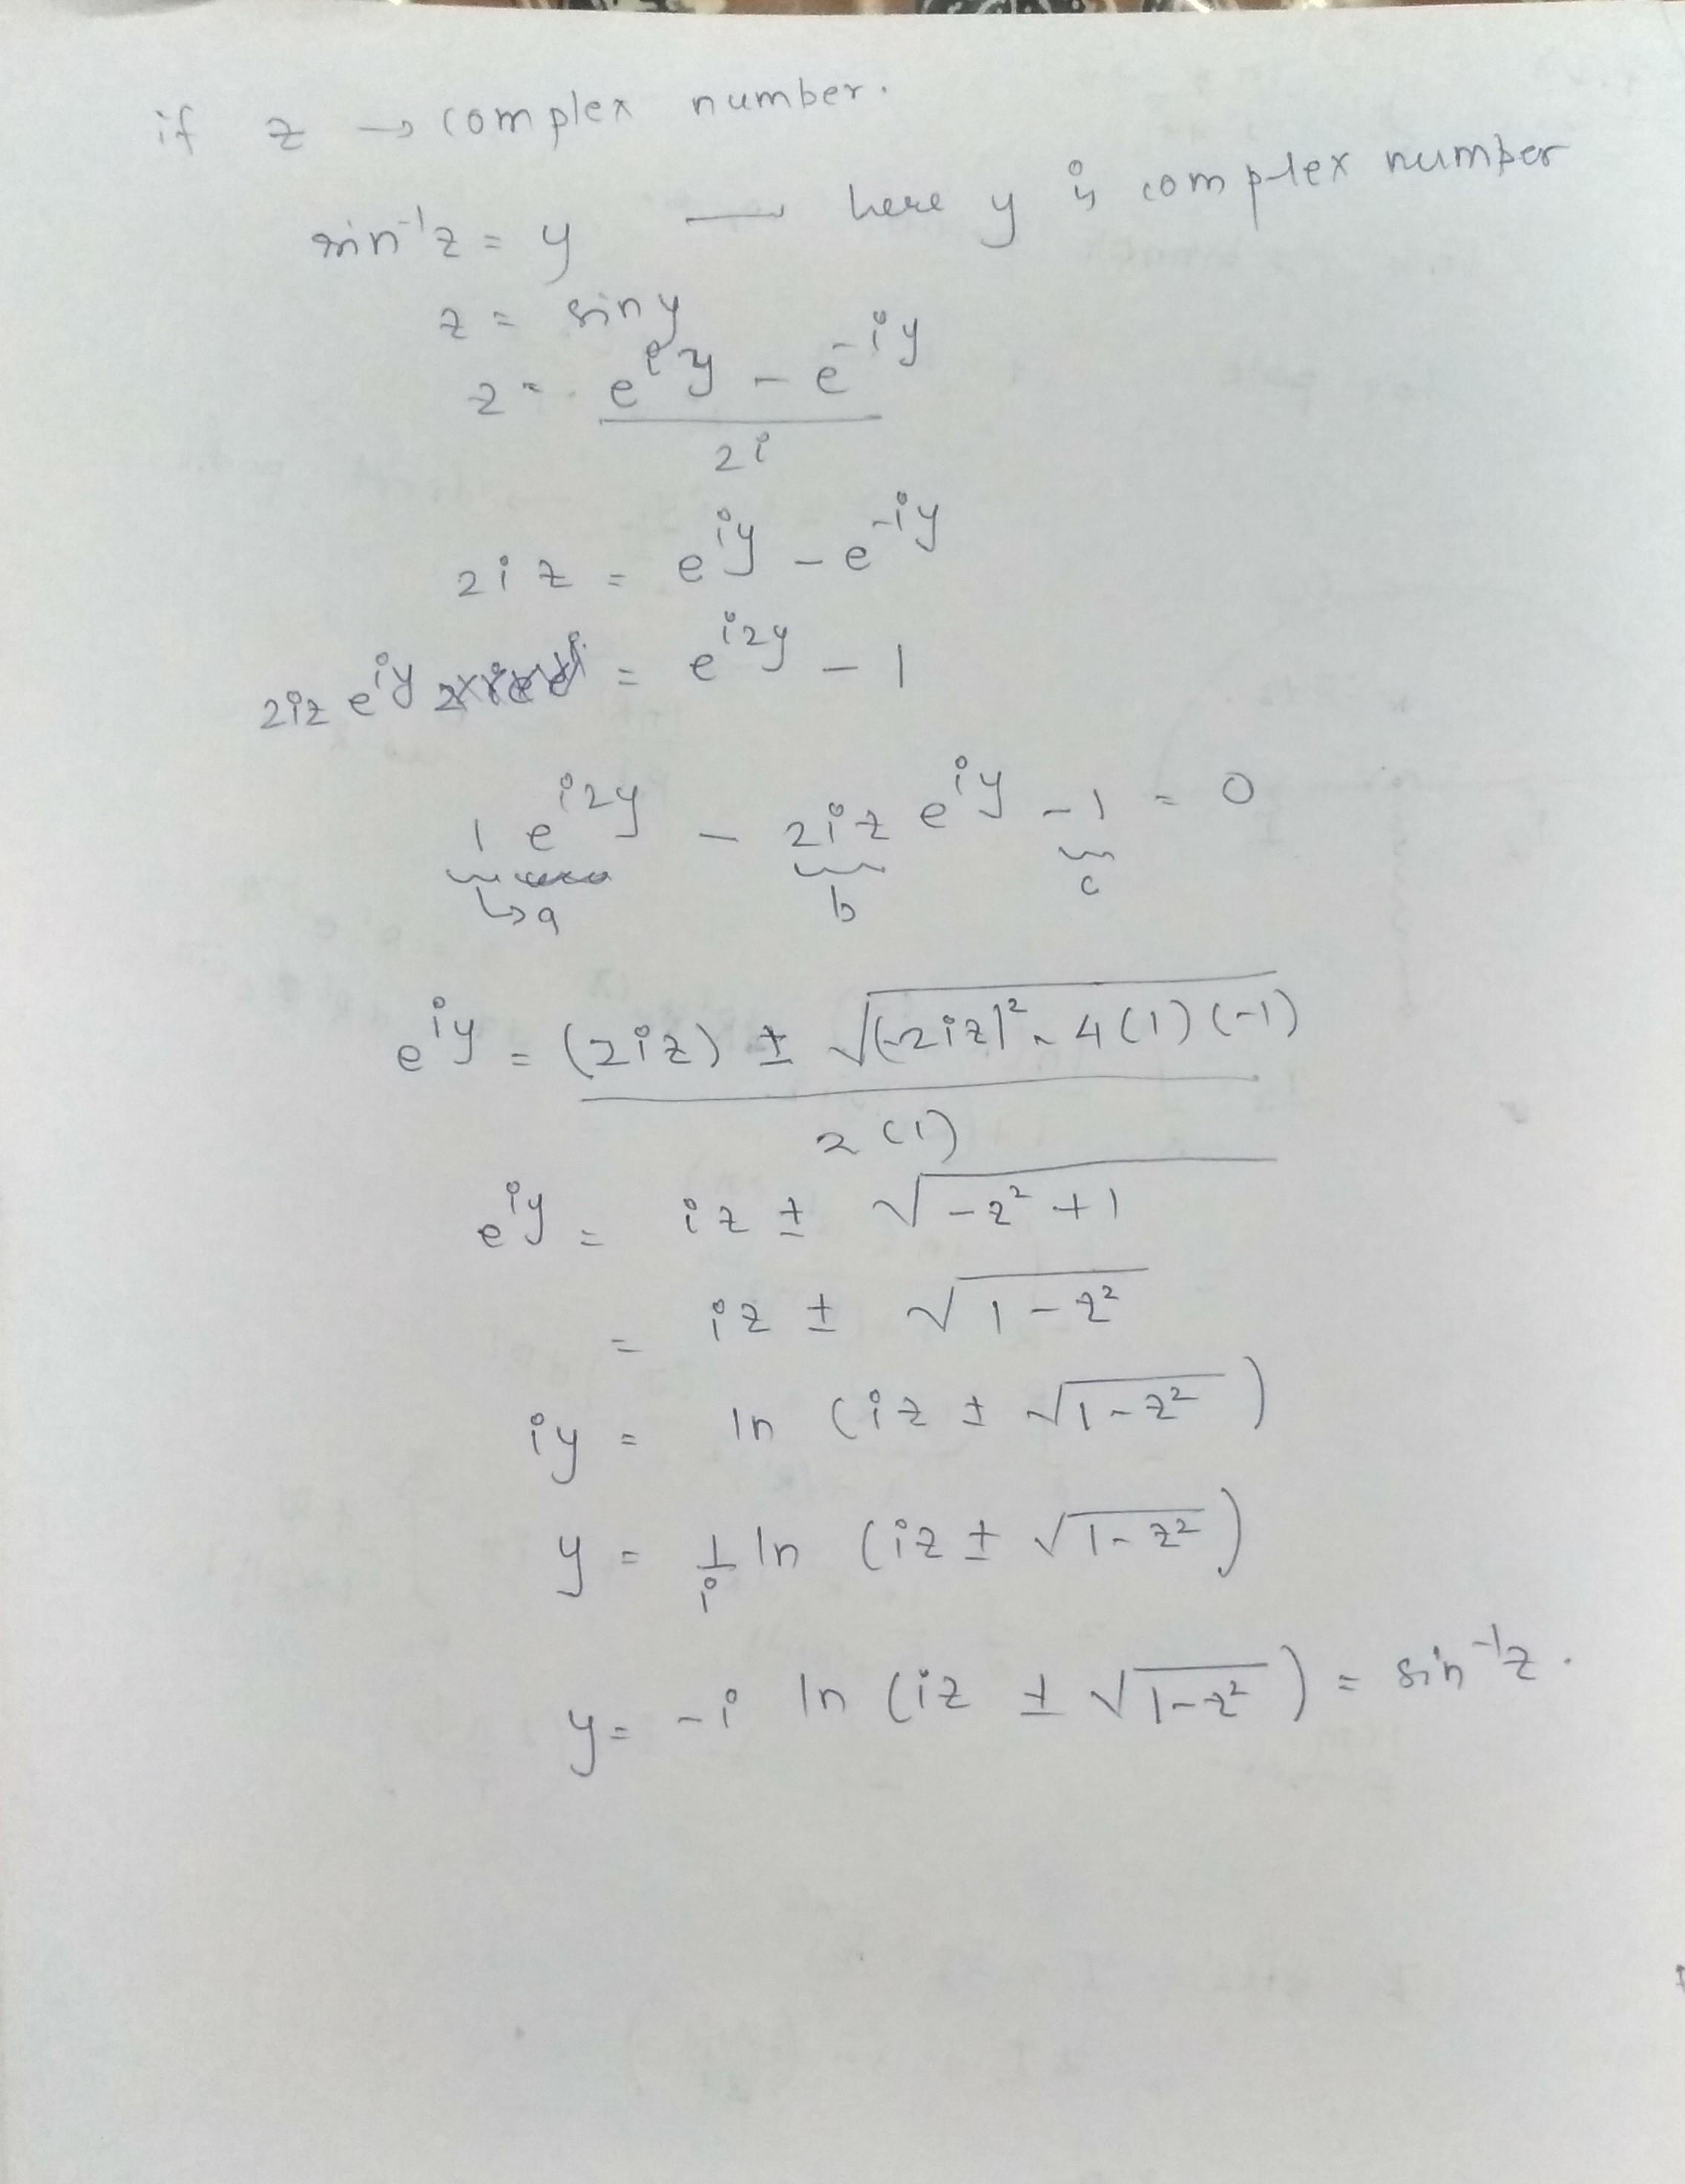 if z → complex number.
sin⁻¹z = y — here y is complex number
z = sin y
z = (e^{iy} − e^{−iy}) / 2i
2iz = e^{iy} − e^{−iy}
2iz e^{iy} = e^{i2y} − 1
1 e^{i2y} − 2iz e^{iy} − 1 = 0
a b c
e^{iy} = ((2iz) ± √((−2iz)² − 4(1)(−1))) / 2(1)
e^{iy} = iz ± √(−z² + 1)
= iz ± √(1 − z²)
iy = ln (iz ± √(1 − z²))
y = 1/i ln (iz ± √(1 − z²))
y = −i ln (iz ± √(1 − z²)) = sin⁻¹z.